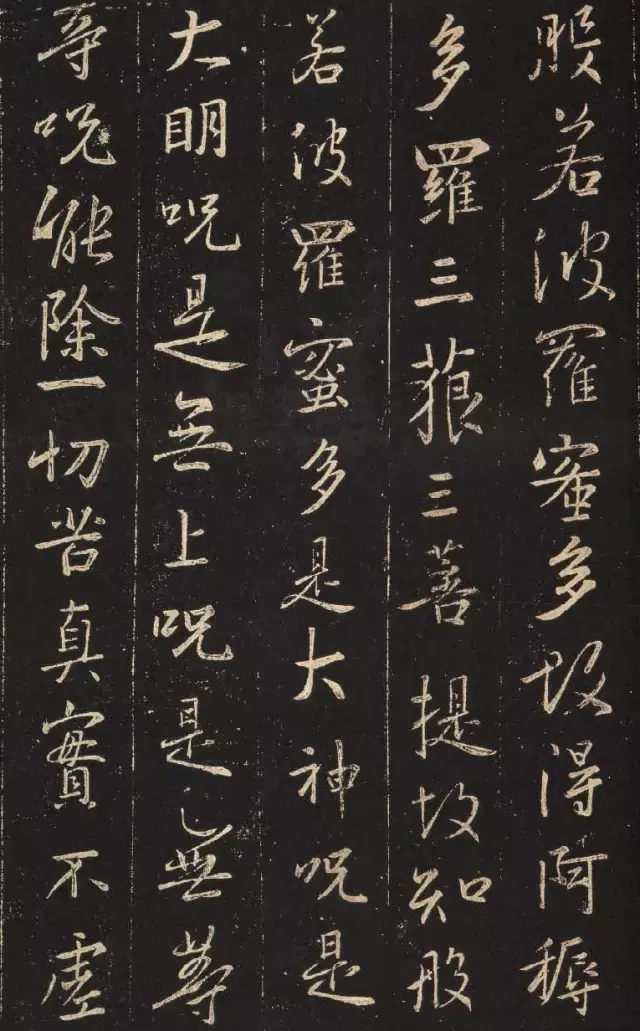 般若波羅蜜多故得阿耨
多羅三藐三菩提故知般
若波羅蜜多是大神咒是
大明咒是無上咒是無等
等咒能除一切苦真實不虛